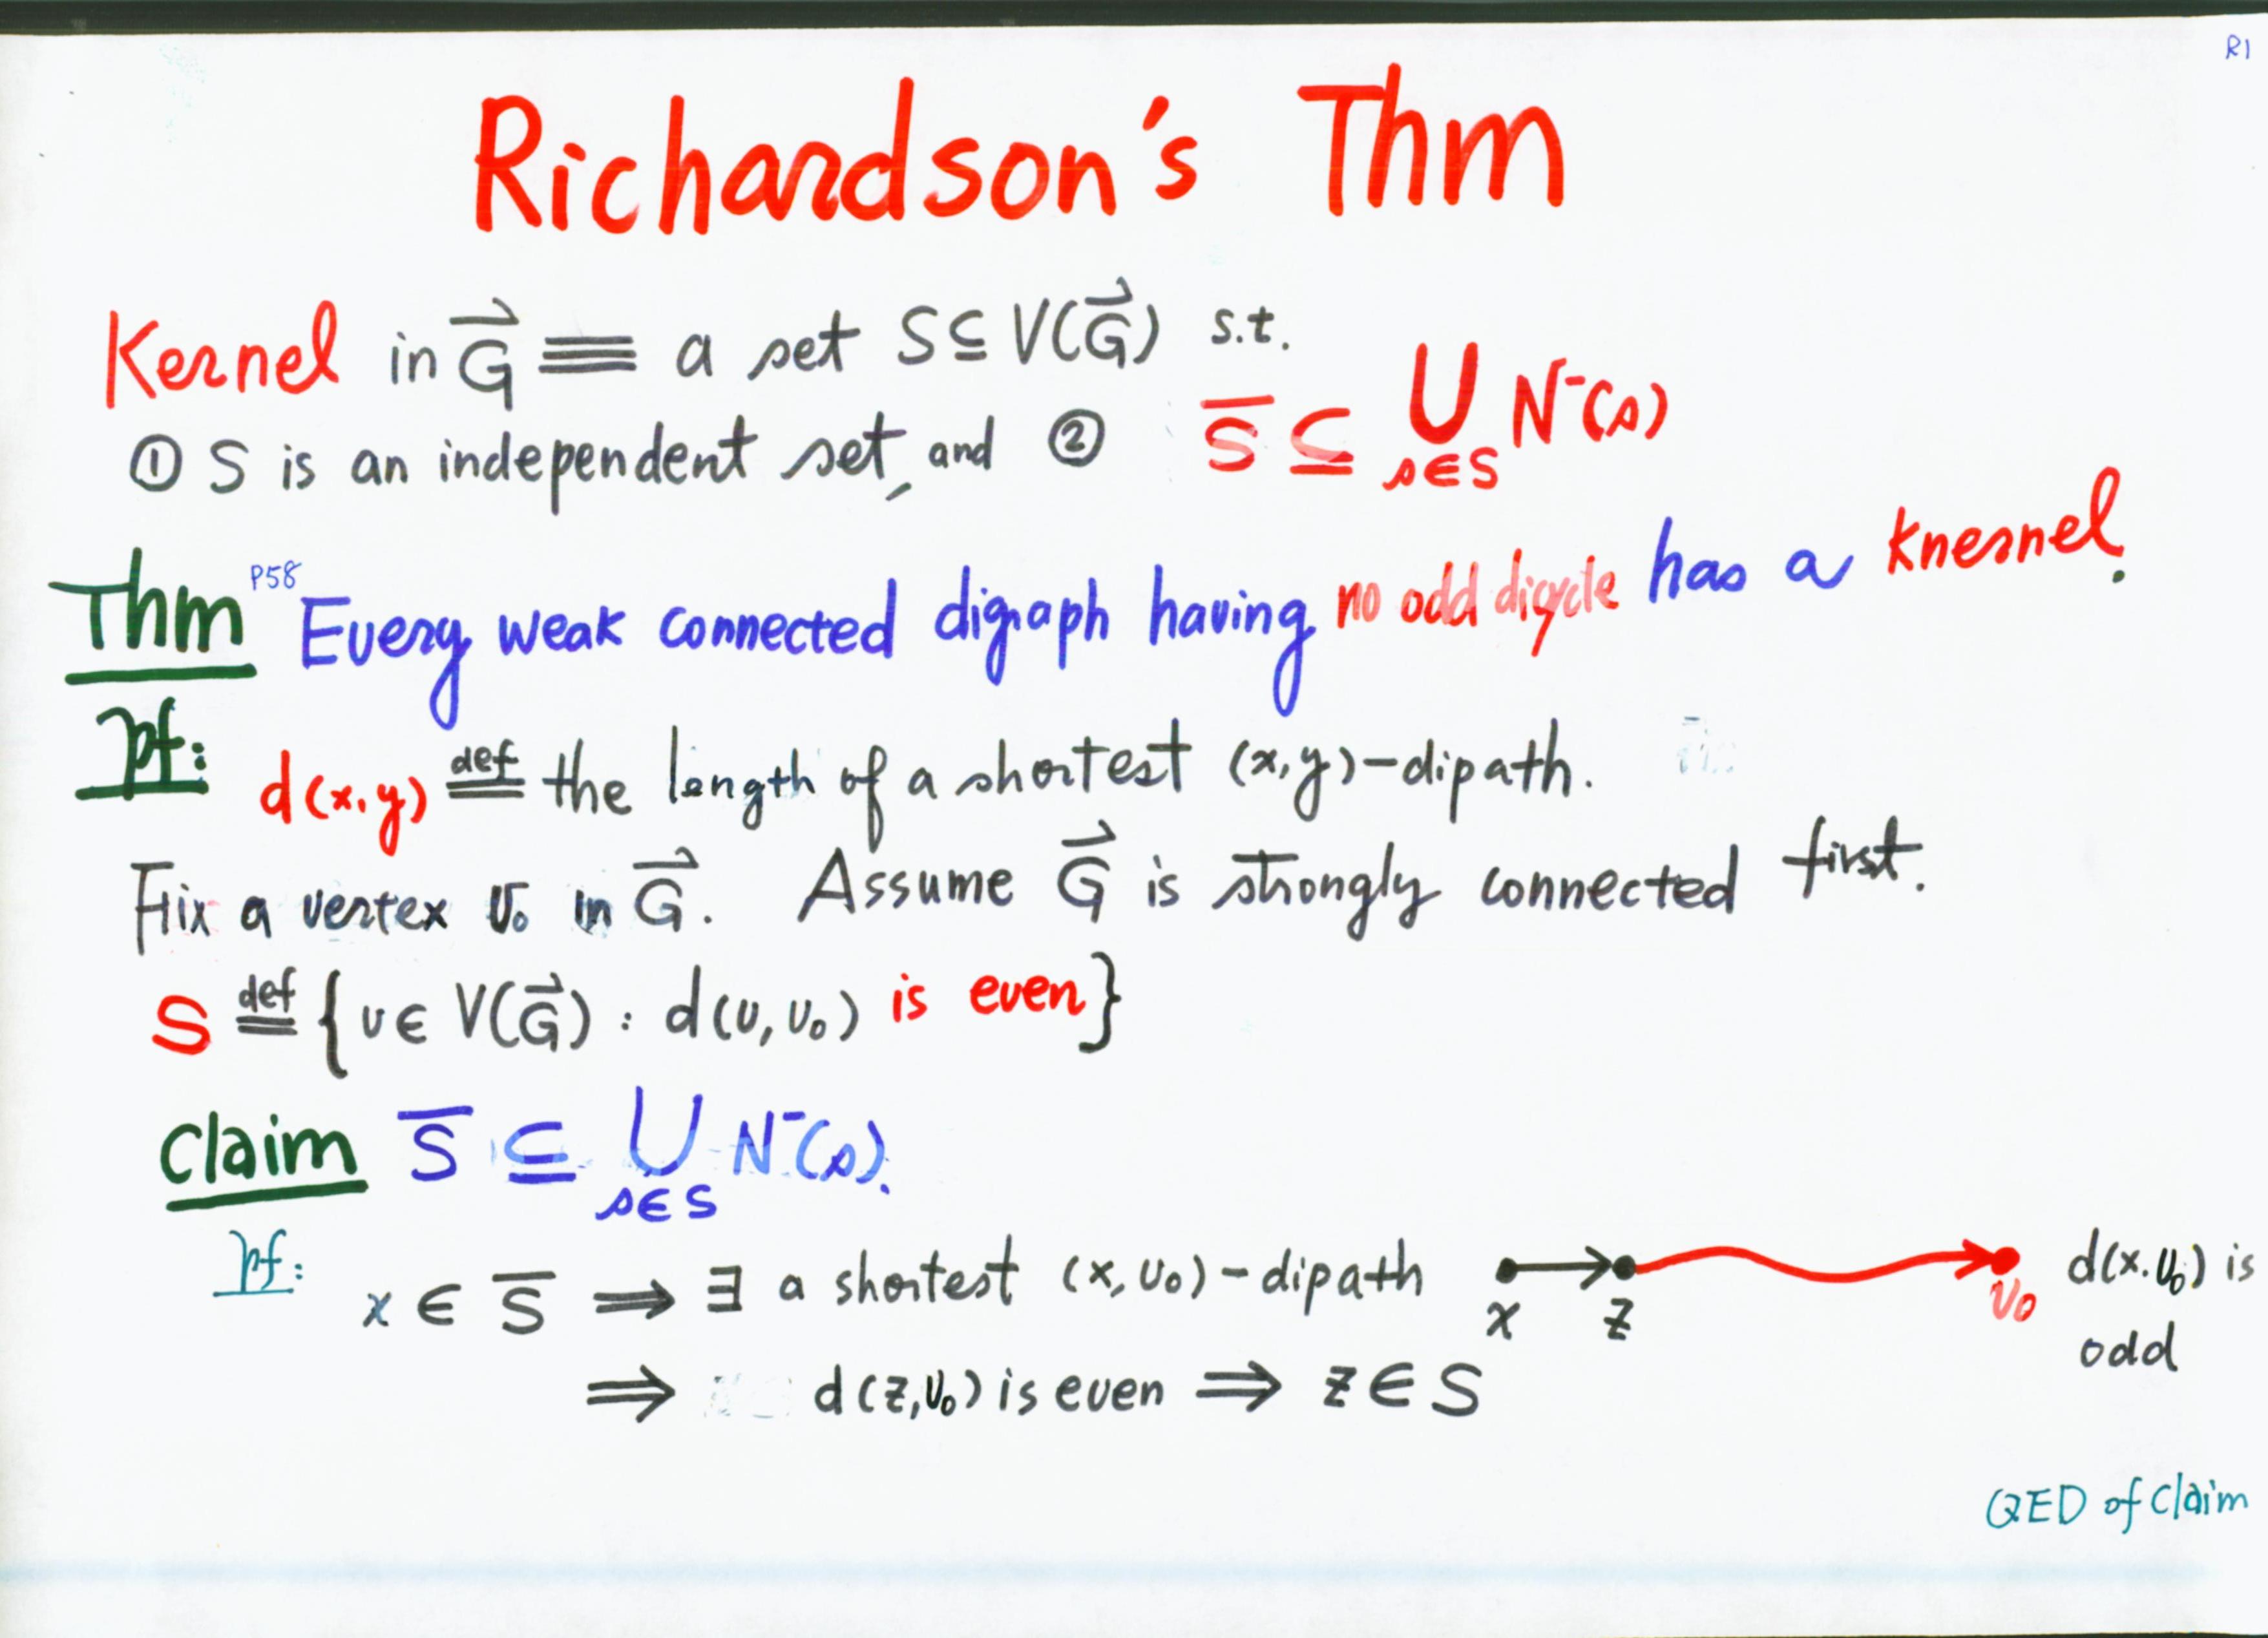 R1
Richardson's Thm
Kernel in G⃗ ≡ a set S ⊆ V(G⃗) s.t.
① S is an independent set, and ② S̅ ⊆ ⋃_{s∈S} N⁻(s)
Thm P58 Every weak connected digraph having no odd dicycle has a knernel.
pf: d(x,y) ≝ the length of a shortest (x,y)-dipath.
Fix a vertex v₀ in G⃗. Assume G⃗ is strongly connected first.
S ≝ {v ∈ V(G⃗) : d(v,v₀) is even}
Claim S̅ ⊆ ⋃_{s∈S} N⁻(s).
pf: x ∈ S̅ ⟹ ∃ a shortest (x,v₀)-dipath x z v₀ d(x.v₀) is
odd
⟹ d(z,v₀) is even ⟹ z ∈ S
QED of claim